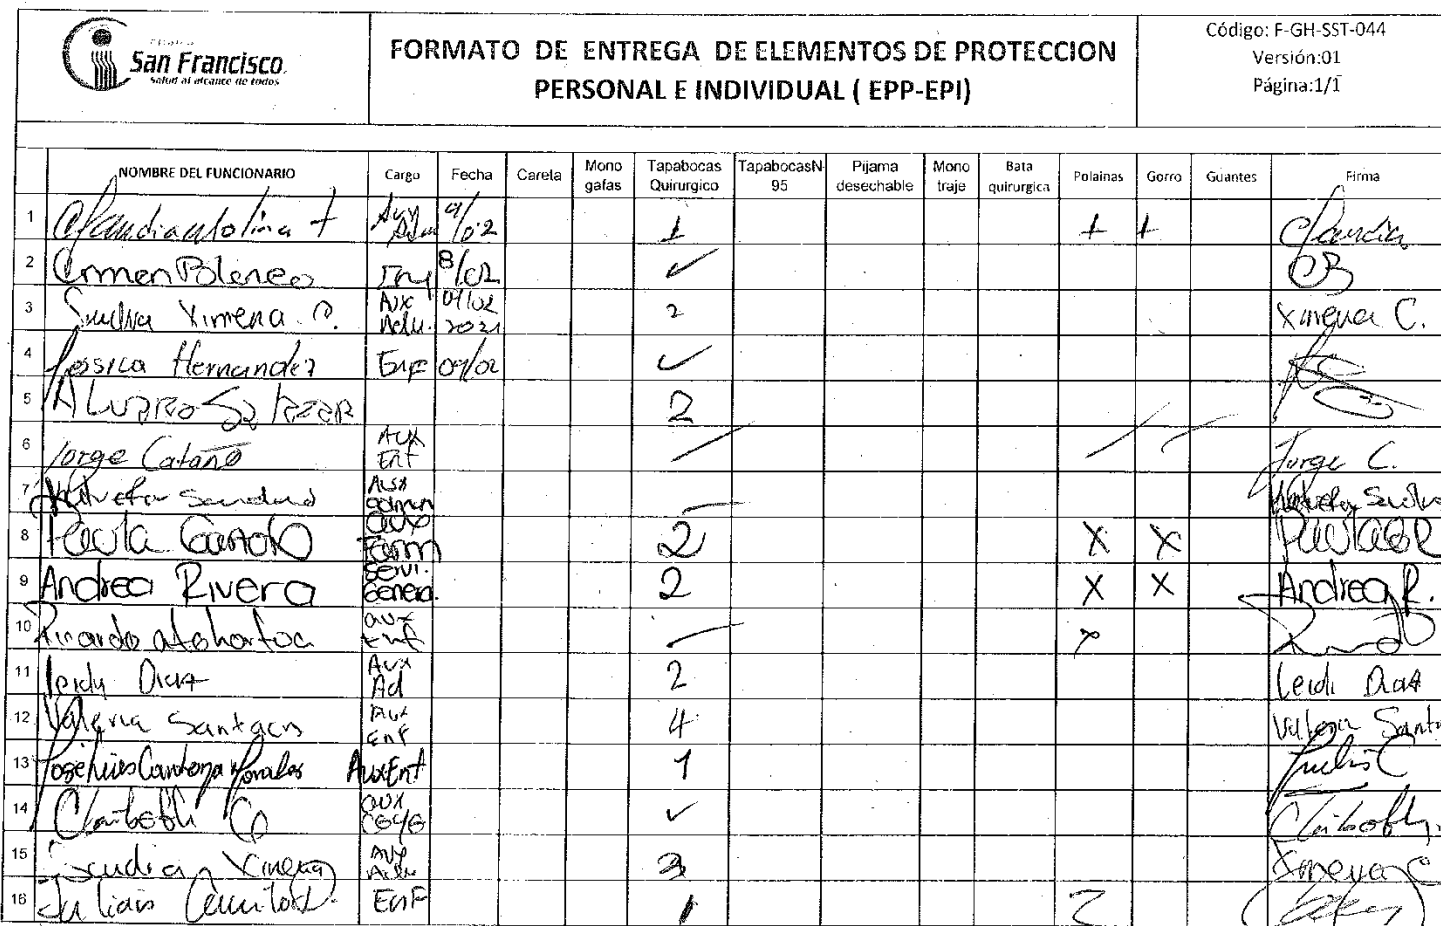 Clinica
San Francisco.
Salud al alcance de todos
FORMATO DE ENTREGA DE ELEMENTOS DE PROTECCION
PERSONAL E INDIVIDUAL ( EPP-EPI)
Código: F-GH-SST-044
Versión:01
Página:1/1
NOMBRE DEL FUNCIONARIO Cargo Fecha Careta Mono gafas Tapabocas Quirurgico TapabocasN-95 Pijama desechable Mono traje Bata quirurgica Polainas Gorro Guantes Firma
1 Claudia Molina Aux Adm 9/02 1 + + Claudia
2 8/02 ✓ CB
3 Ximena C. Aux Adm. 09/02 2021 2 Ximena C.
4 Jessica Hernandez Enf 09/02 ✓
5 Alvaro Salazar 2
6 Jorge Cataño Aux Enf / / / Jorge C.
7 Aux
8 Paula aux Farm 2 X X
9 Andrea Rivera Servi. General. 2 X X Andrea R.
10 Ricardo atehortoa aux Enf x
11 Leidy Diaz Aux Ad 2 Leidi Diaz
12 Valeria Santa Aux Enf 4 Valeria Santa
13 Jose Luis Cardona Morales Aux Enf 1
14 aux ✓
15 Ximena Aux Adm 3 Ximena C
16 Julian Enf 1 2